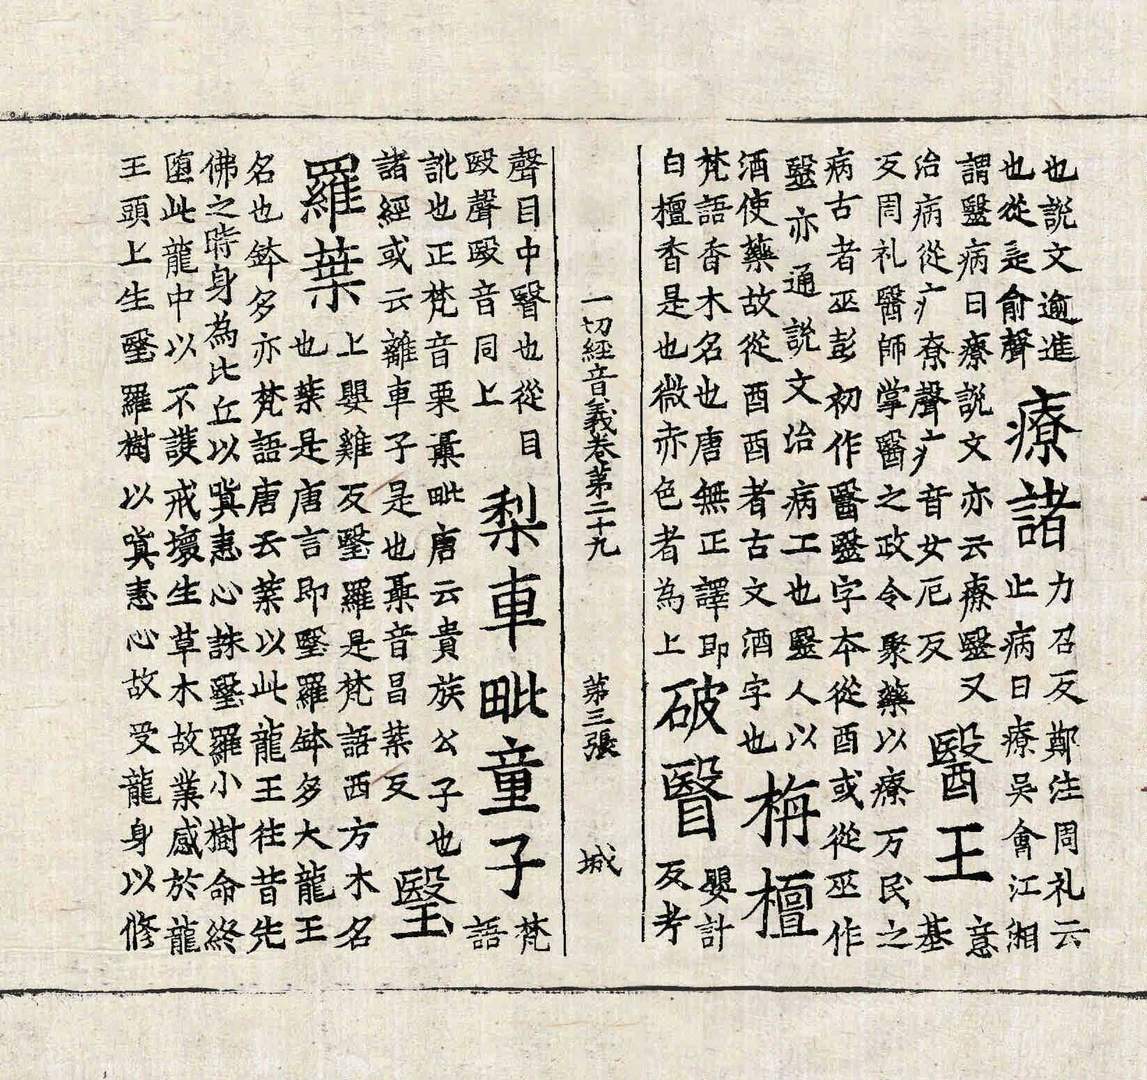 也說文逾進
也從辵俞聲
療諸
力召反鄭注周礼云
止病曰療吳會江湘
謂毉病曰療說文亦云療毉又
治病從疒尞聲疒音女厄反
醫王
意
基
反周礼醫師掌醫之政令聚藥以療万民之
病古者巫彭初作醫毉字本從酉或從巫作
毉亦通說文治病工也毉人以
酒使藥故從酉酉者古文酒字也
栴檀
梵語香木名也唐無正譯即
白檀香是也微赤色者為上
破瞖
嬰計
反考
一切經音義卷第二十九 第三張 城
聲目中瞖也從目
殹聲殹音同上
梨車毗童子
梵
語
訛也正梵音栗毗唐云貴族公子也
諸經或云離車子是也音昌葉反
毉
羅葉
上嬰雞反毉羅是梵語西方木名
也葉是唐言即毉羅鉢多大龍王
名也鉢多亦梵語唐云葉以此龍王往昔先
佛之時身為比丘以瞋恚心誅毉羅小樹命終
墮此龍中以不護戒壞生草木故業感於龍
王頭上生毉羅樹以瞋恚心故受龍身以修